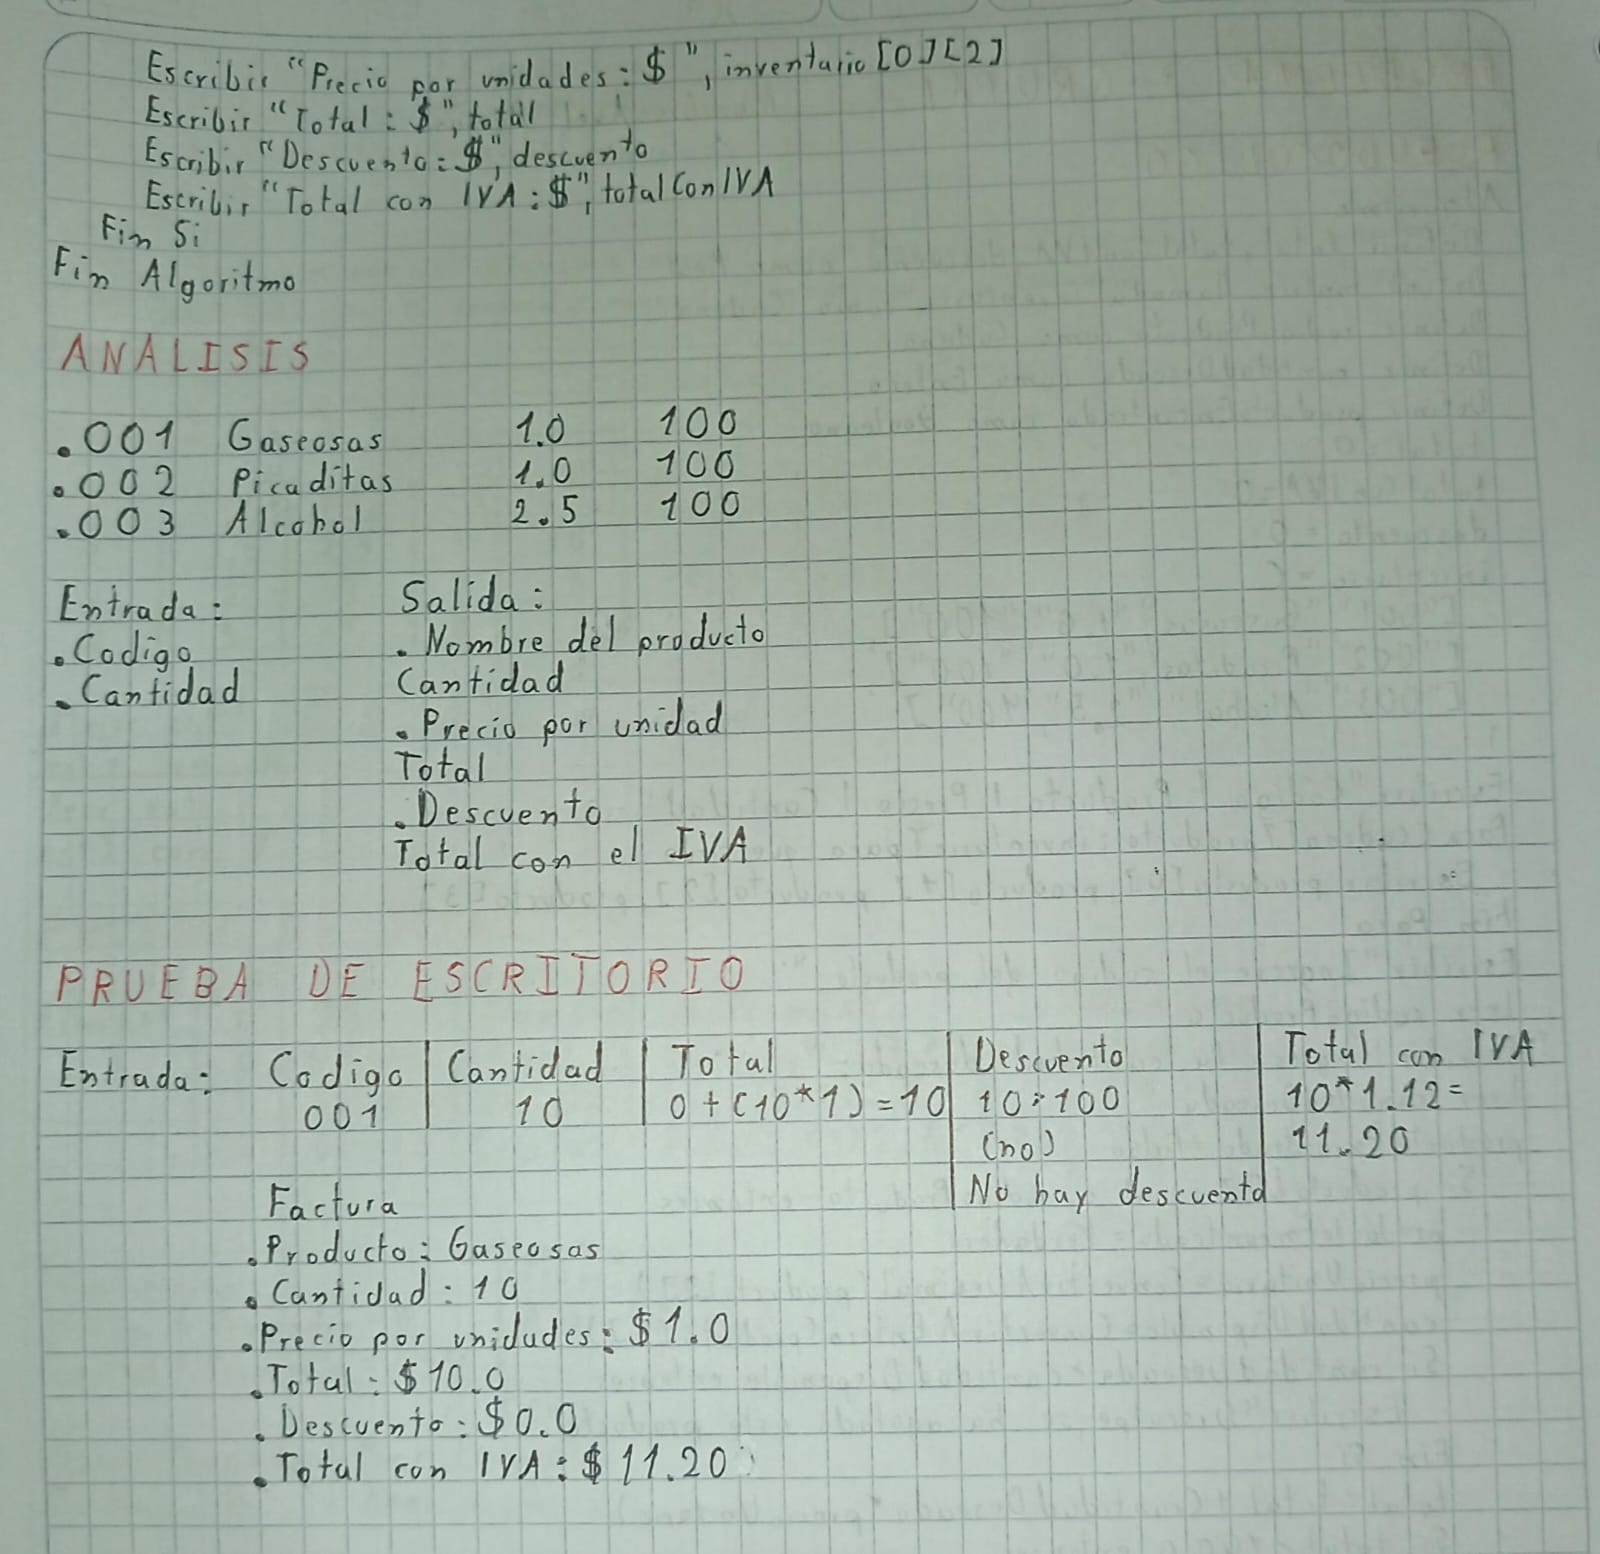 Escribir "Precio por unidades: $", inventario [0][2]
Escribir "Total: $", total
Escribir "Descuento: $", descuento
Escribir "Total con IVA: $", totalConIVA
Fin Si
Fin Algoritmo
ANALISIS
.001 Gaseosas 1.0 100
.002 Picaditas 1.0 100
.003 Alcohol 2.5 100
Entrada: Salida:
.Codigo .Nombre del producto
.Cantidad Cantidad
.Precio por unidad
Total
.Descuento
Total con el IVA
PRUEBA DE ESCRITORIO
Entrada: Codigo Cantidad Total Descuento Total con IVA
001 10 0+(10*1)=10 10>100 10*1.12=
(no) 11.20
No hay descuento
Factura
.Producto: Gaseosas
.Cantidad: 10
.Precio por unidades: $1.0
.Total: $10.0
.Descuento: $0.0
.Total con IVA: $11.20